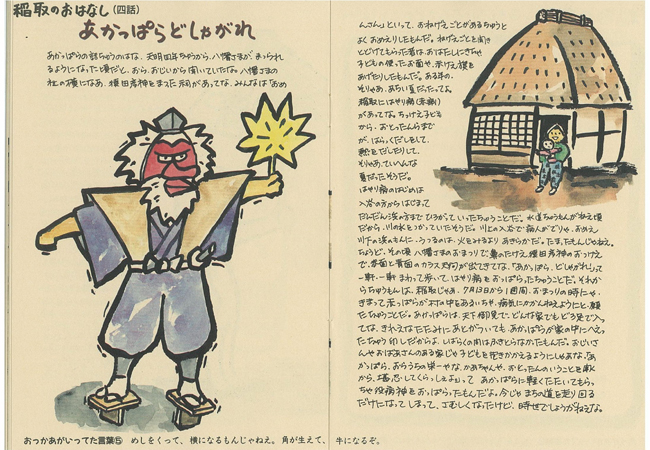 稲取のおはなし(四話)
あかっぱらどしゃがれ
あかっぱらの話ちゅうのはな、天明四年ちゅうから、八幡さまが、まつられ
るようになった頃だと、おら、おじいから聞いていたな。八幡さまの
社の横になあ、猿田彦神をまつた祠があってな、みんなは「おめ
んさん」といって、おねげえごとがあるちゅうと
よくおめえりしたもんだ。ねげえごとを聞き
とどけてもらった者は、おはたしにきちゃ
子どもの使ったお面や、赤けえ旗を
あげたりしたもんだ。ある年の、
そりゃあ、あちい夏だったってよ。
稲取にはやり病(赤痢)
があってな、ちっけえ子ども
から、おとたんらまで
が、はらっくだしをして、
熱をだしたりして、
そりゃあ、ていへんな
夏だったそうだ。
はやり病のはじめは
入谷の方からはじまって
だんだん浜の方まで ひろがて いったちゅうことだ。水道ちゅうもんがねえ頃
だから、川の水をつかっていたそうだ。川上の入谷で病人がでりゃ、おめえ
川下の浜のもんに、うつるのは、火をみるより あきらかだ。たまたもんじゃねえ。
ちょうど、その頃 八幡さまのおまつりで、鼻のたけえ猿田彦神のおつげえ
で、赤面と黄面のカラス天狗が出てきてな、「あかっぱら、どしゃがれ」って
一軒、一軒 まわって歩いて、はやり病を おっぱらったちゅうことだ。それか
らちゅうもんは、稲取じゃあ、7月13日から1週間、おまつりの時にゃ、
きまって赤っぱらが村の中をあるいちゃ、病気にかかんねえようにと、願っ
たちゅうことだ。あかっぱらは、天下御免で、どんな家でもどうぞ入っ
てな、きれえなたたみに あとがついても、あかっぱらが家の中にへえっ
たちゅう印しだからよ、しばらくの間はふきとらなかったもんだ。おじいさ
んやおばあさんのある家じゃ子どもを抱きかかえるようにしながな、「あ
かっぱら、おらうちの坊ーやな、かあちゃんや、おとったんのいうことを聞く
から、堪忍してくらっしぇよ」って あかっぱらに軽くたたいてもら、
ちゃ 疫病神を おっぱらったもんだよ。今じゃ まちの道を 走り 回る
だけに なって しまって、さむしくなったけど、時世でしょうがねえな。
おっかあがいってた言葉⑮ めしをくって、横になるもんじゃねえ。角が生えて、牛になるぞ。